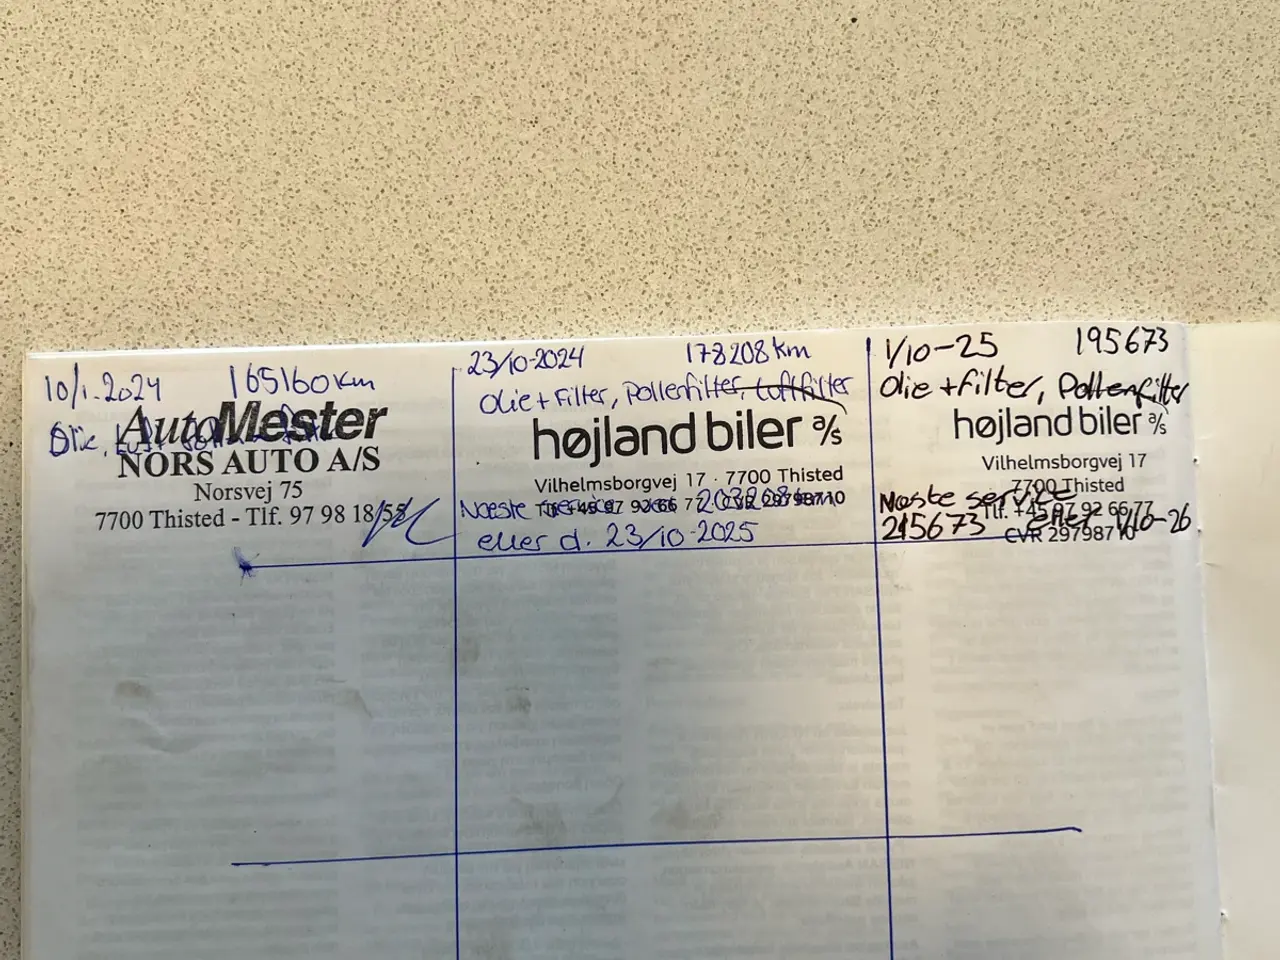 10/1-2024 165160 km
Olie, Luft
AutoMester
NORS AUTO A/S
Norsvej 75
7700 Thisted - Tlf. 97 98 18 55
23/10-2024 178208 km
Olie + Filter, Pollenfilter, Luftfilter
højland biler a/s
Vilhelmsborgvej 17 · 7700 Thisted
Tlf. +45 97 92 66 77 · CVR 29798710
Næste service
eller d. 23/10-2025
1/10-25 195673
Olie + filter, Pollenfilter
højland biler a/s
Vilhelmsborgvej 17
7700 Thisted
Tlf. +45 97 92 66 77
CVR 29798710
Næste service
215673 eller 1/10-26